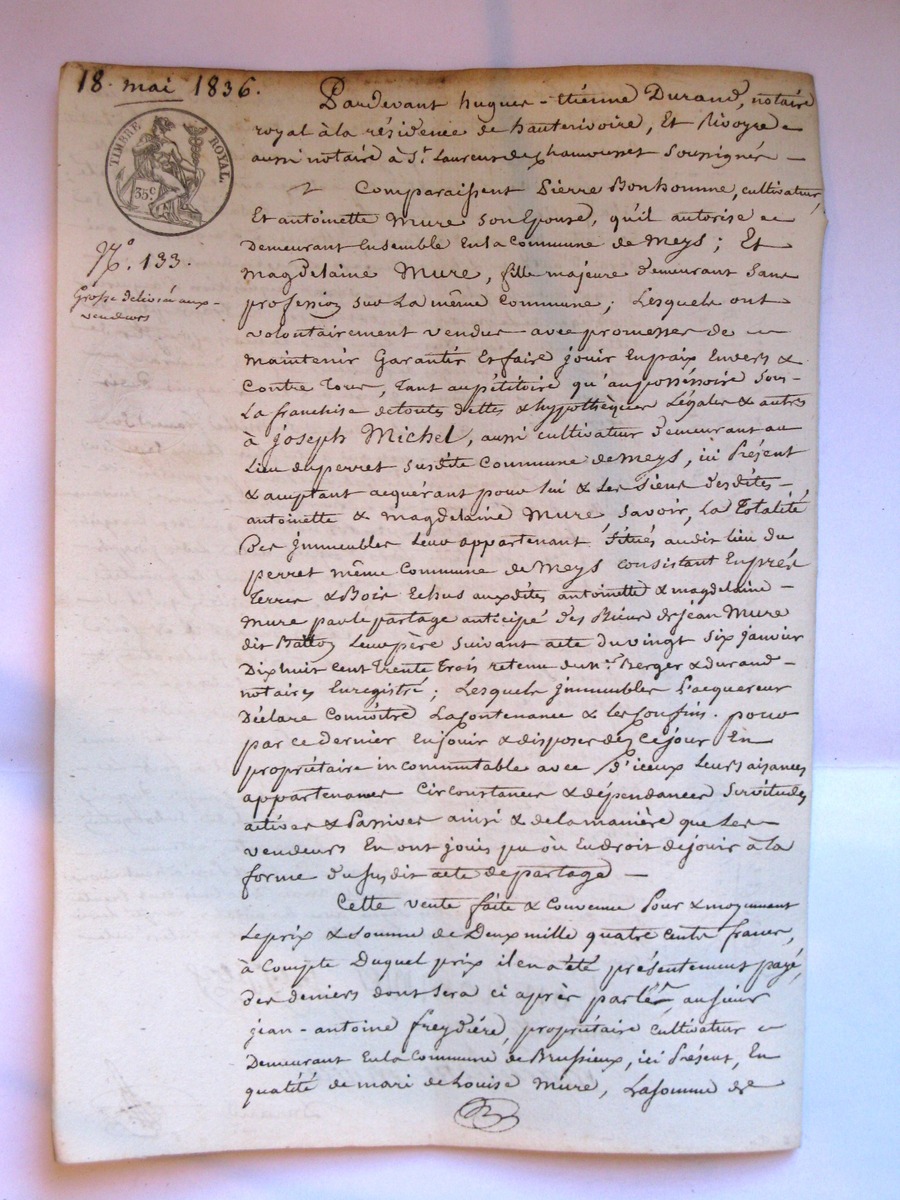 18. mai 1836.
TIMBRE ROYAL.
35 c.
N.º 133.
Grosse délivrée aux
vendeurs
Pardevant hugues-étienne Durand, notaire
royal à la résidence de hauterivoire, Et Rivoyre
aussi notaire à St. Laurent de chamousset soussignés —
Comparaissent Pierre Bonhomme, cultivateur,
Et antoinette Mure son Epouse, qu'il autorise
Demeurant Ensemble En la Commune de Meys; Et
Magdelaine Mure, fille majeure demeurant sans
profession sur la même Commune; Lesquels ont
volontairement vendu avec promesses de
Maintenir Garantir Et faire jouir En paix Envers &
Contre tous, tant au pétitoire qu'au posséssoire sous
La franchise de toutes dettes & hypothèques Légales & autres
à joseph Michel, aussi cultivateur demeurant au
Lieu du perret susdite Commune de Meys, ici Présent
& acceptant acquérant pour lui & Les siens desdites
antoinette & Magdelaine Mure savoir, La Totalité
Des jmmeubles Leur appartenant Situés audit lieu du
perret même Commune de Meys consistant En prés
Terres & Bois Echus auxdites antoinette & magdelaine
Mure par le partage anticipé des Biens de jean Mure
dit Batton Leur père suivant acte du vingt six janvier
Dix huit cent trente trois retenu du Mes. Berger & durand
notaires Enregistré; Lesquels jmmeubles L'acquereur
Déclare Connoître La Contenance & les Confins. pour
par ce dernier En jouir & disposer dès ce jour En
propriétaire incommutable avec d'iceux Leurs aisances
appartenances Circonstances & dépendances Servitudes
actives & Passives ainsi & de la manière que Les
vendeurs En ont joui pu ou Eu droit de jouir à la
forme du susdit acte de partage —
Cette vente faite & Convenue Pour & moyennant
Le prix & somme de Deux mille quatre cents francs,
à Compte Duquel prix il en a été présentement payé,
des deniers dont sera ci après parlé, au sieur
jean-antoine freydière, propriétaire cultivateur
Demeurant En la Commune de Brussieux, ici Présent, En
qualité de mari de Louise Mure, La somme de